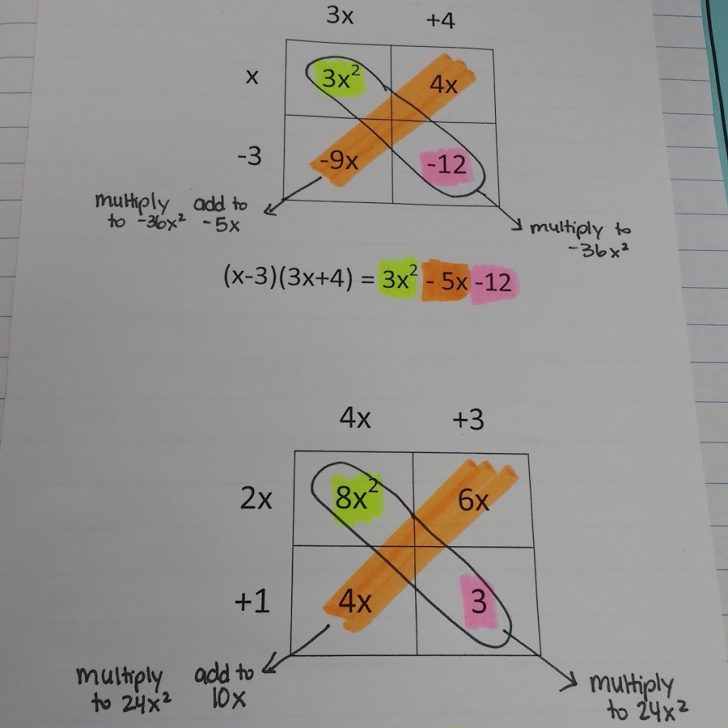 3x +4
x 3x² 4x
-3 -9x -12
multiply add to
to -36x² -5x
multiply to
-36x²
(x-3)(3x+4) = 3x² - 5x -12
4x +3
2x 8x² 6x
+1 4x 3
multiply add to
to 24x² 10x
multiply
to 24x²